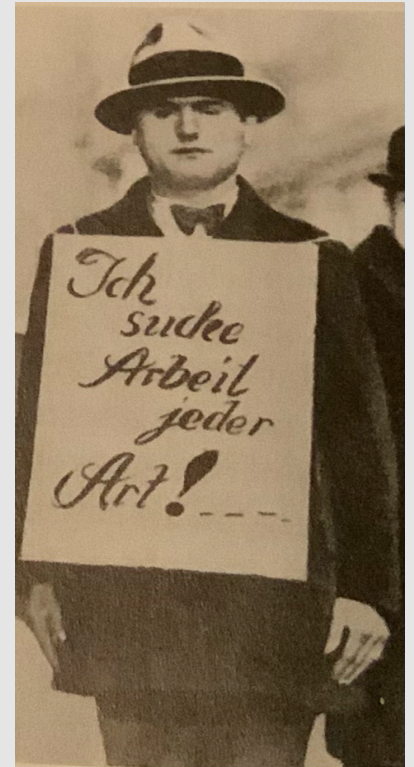 Ich
suche
Arbeit
jeder
Art!----